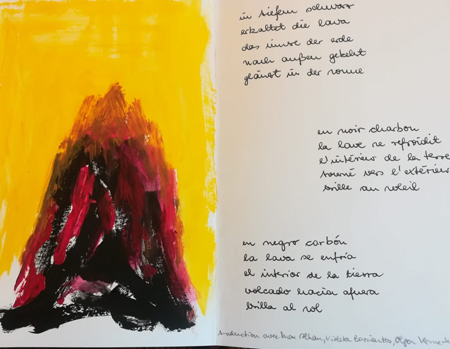 in tiefem schwarz
erkaltet die lava
das innre der erde
nach außen gekehrt
glänzt in der sonne
en noir charbon
la lave se refroidit
l'intérieur de la terre
tourné vers l'extérieur
brille au soleil
en negro carbón
la lava se enfría
el interior de la tierra
volcado hacia afuera
brilla al sol
traduction avec